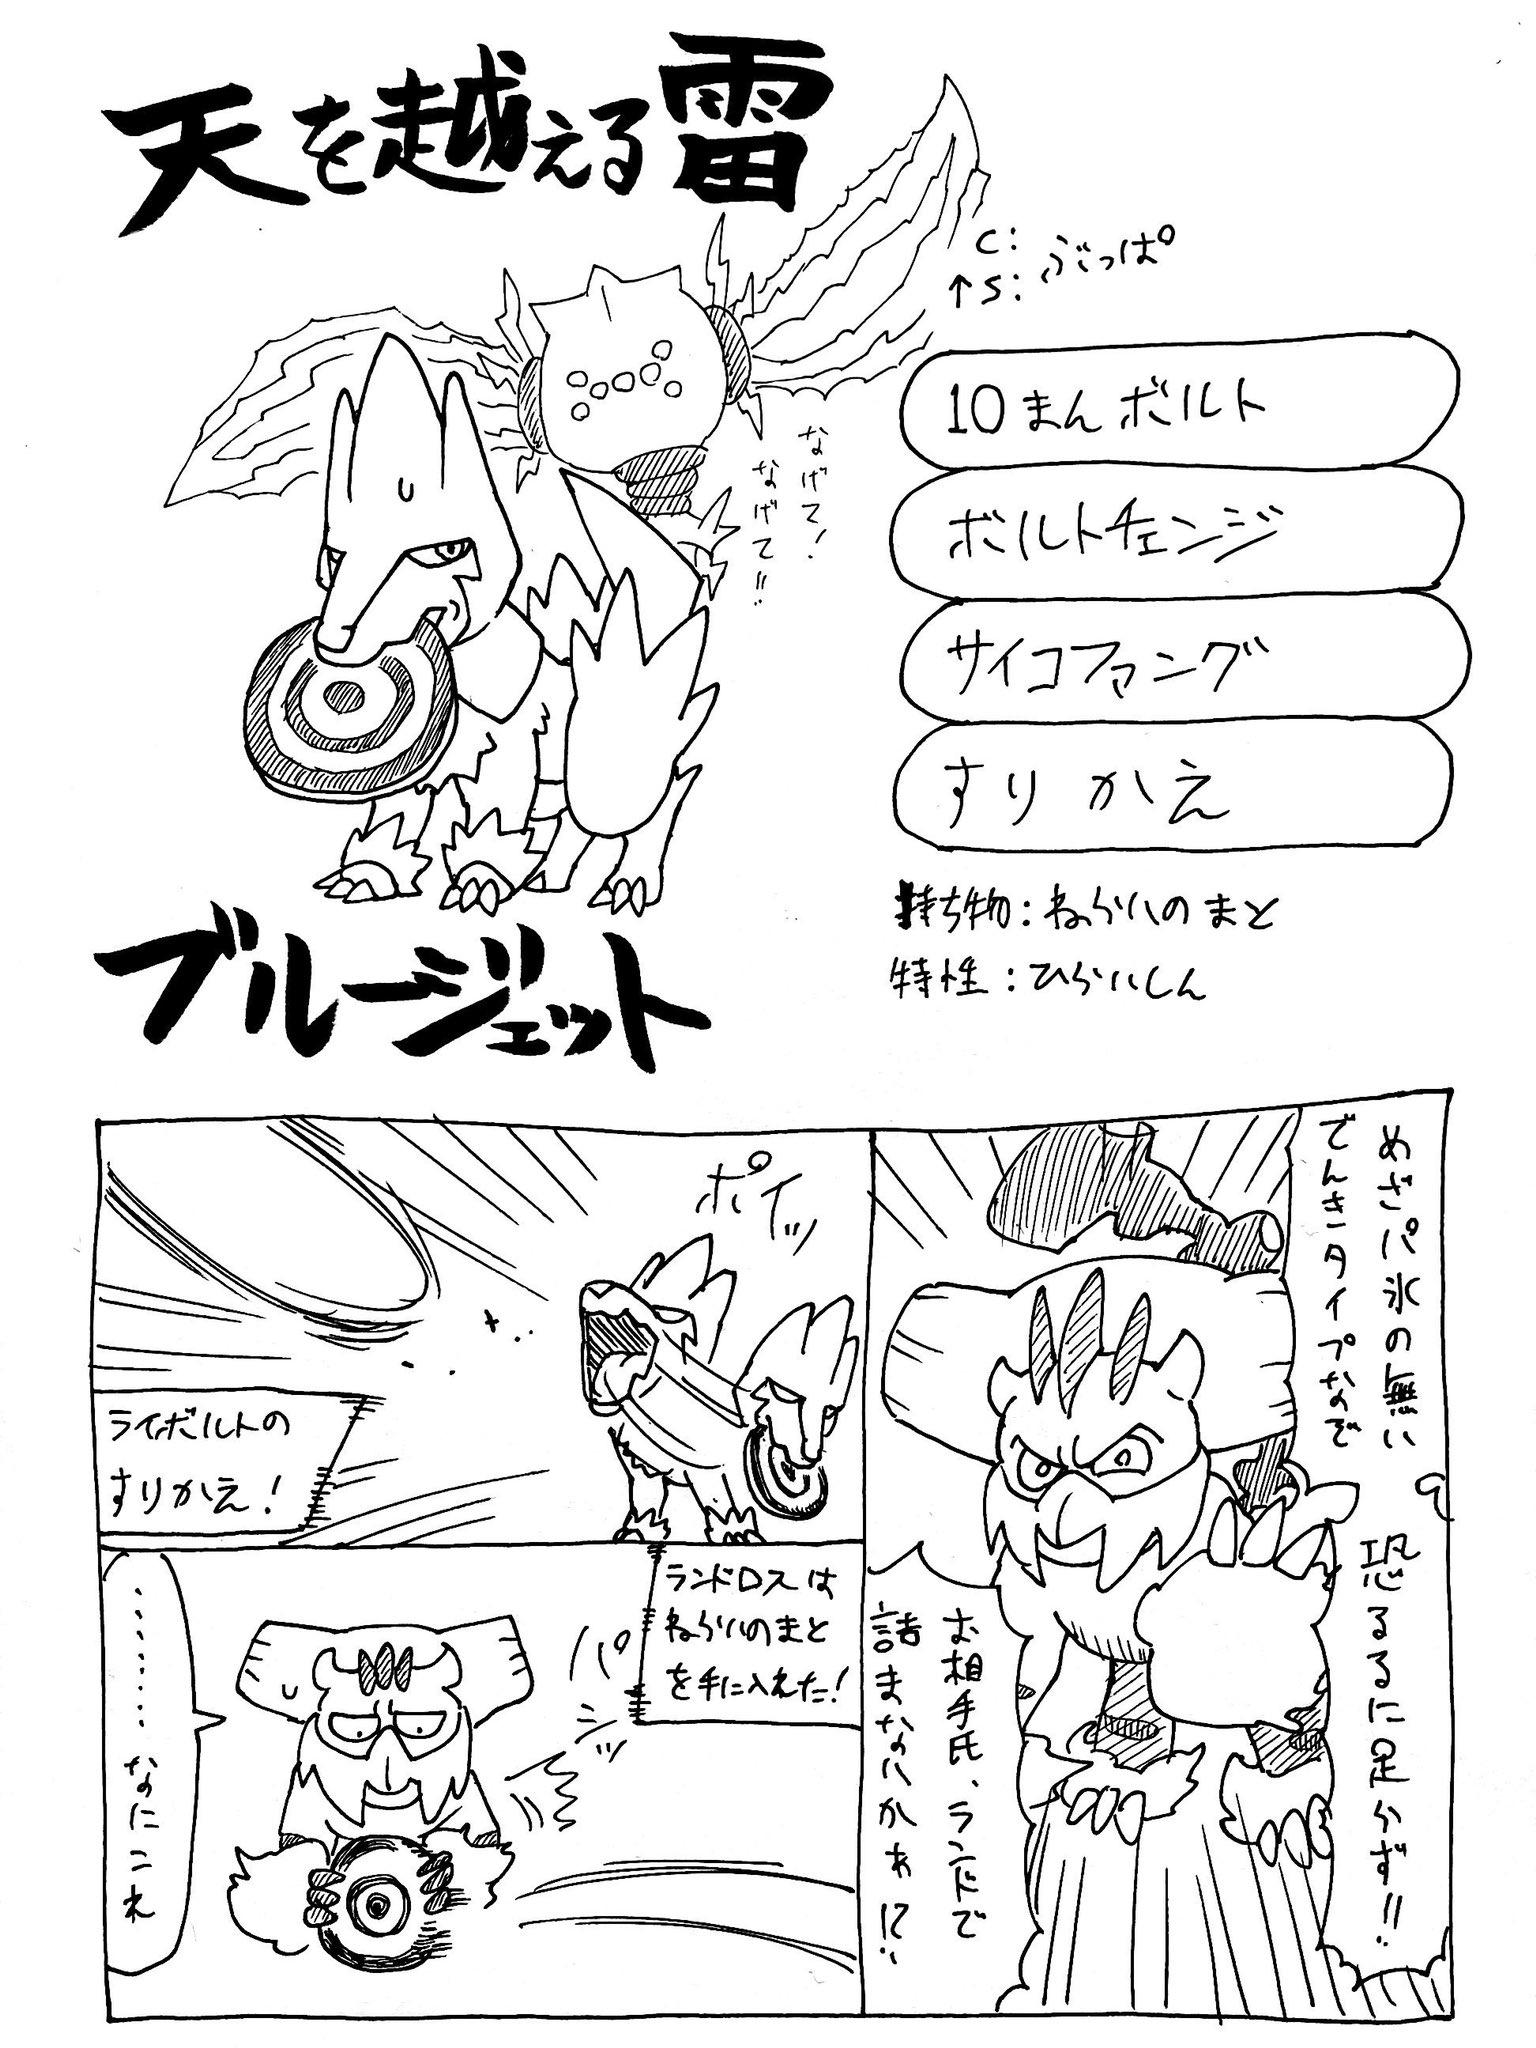 天を越える雷
C:
↑S: ぶっぱ
なげて!
なげて!!
10まんボルト
ボルトチェンジ
サイコファング
すりかえ
持ち物:ねらいのまと
特性:ひらいしん
ブルージェット
めざパ氷の無い
でんきタイプなぞ
恐るるに足らず!!
お相手氏、ランドで
詰まないかぁ!?
ポイッ
ライボルトの
すりかえ!
ランドロスは
ねらいのまと
を手に入れた!
パシッ
………なにこれ